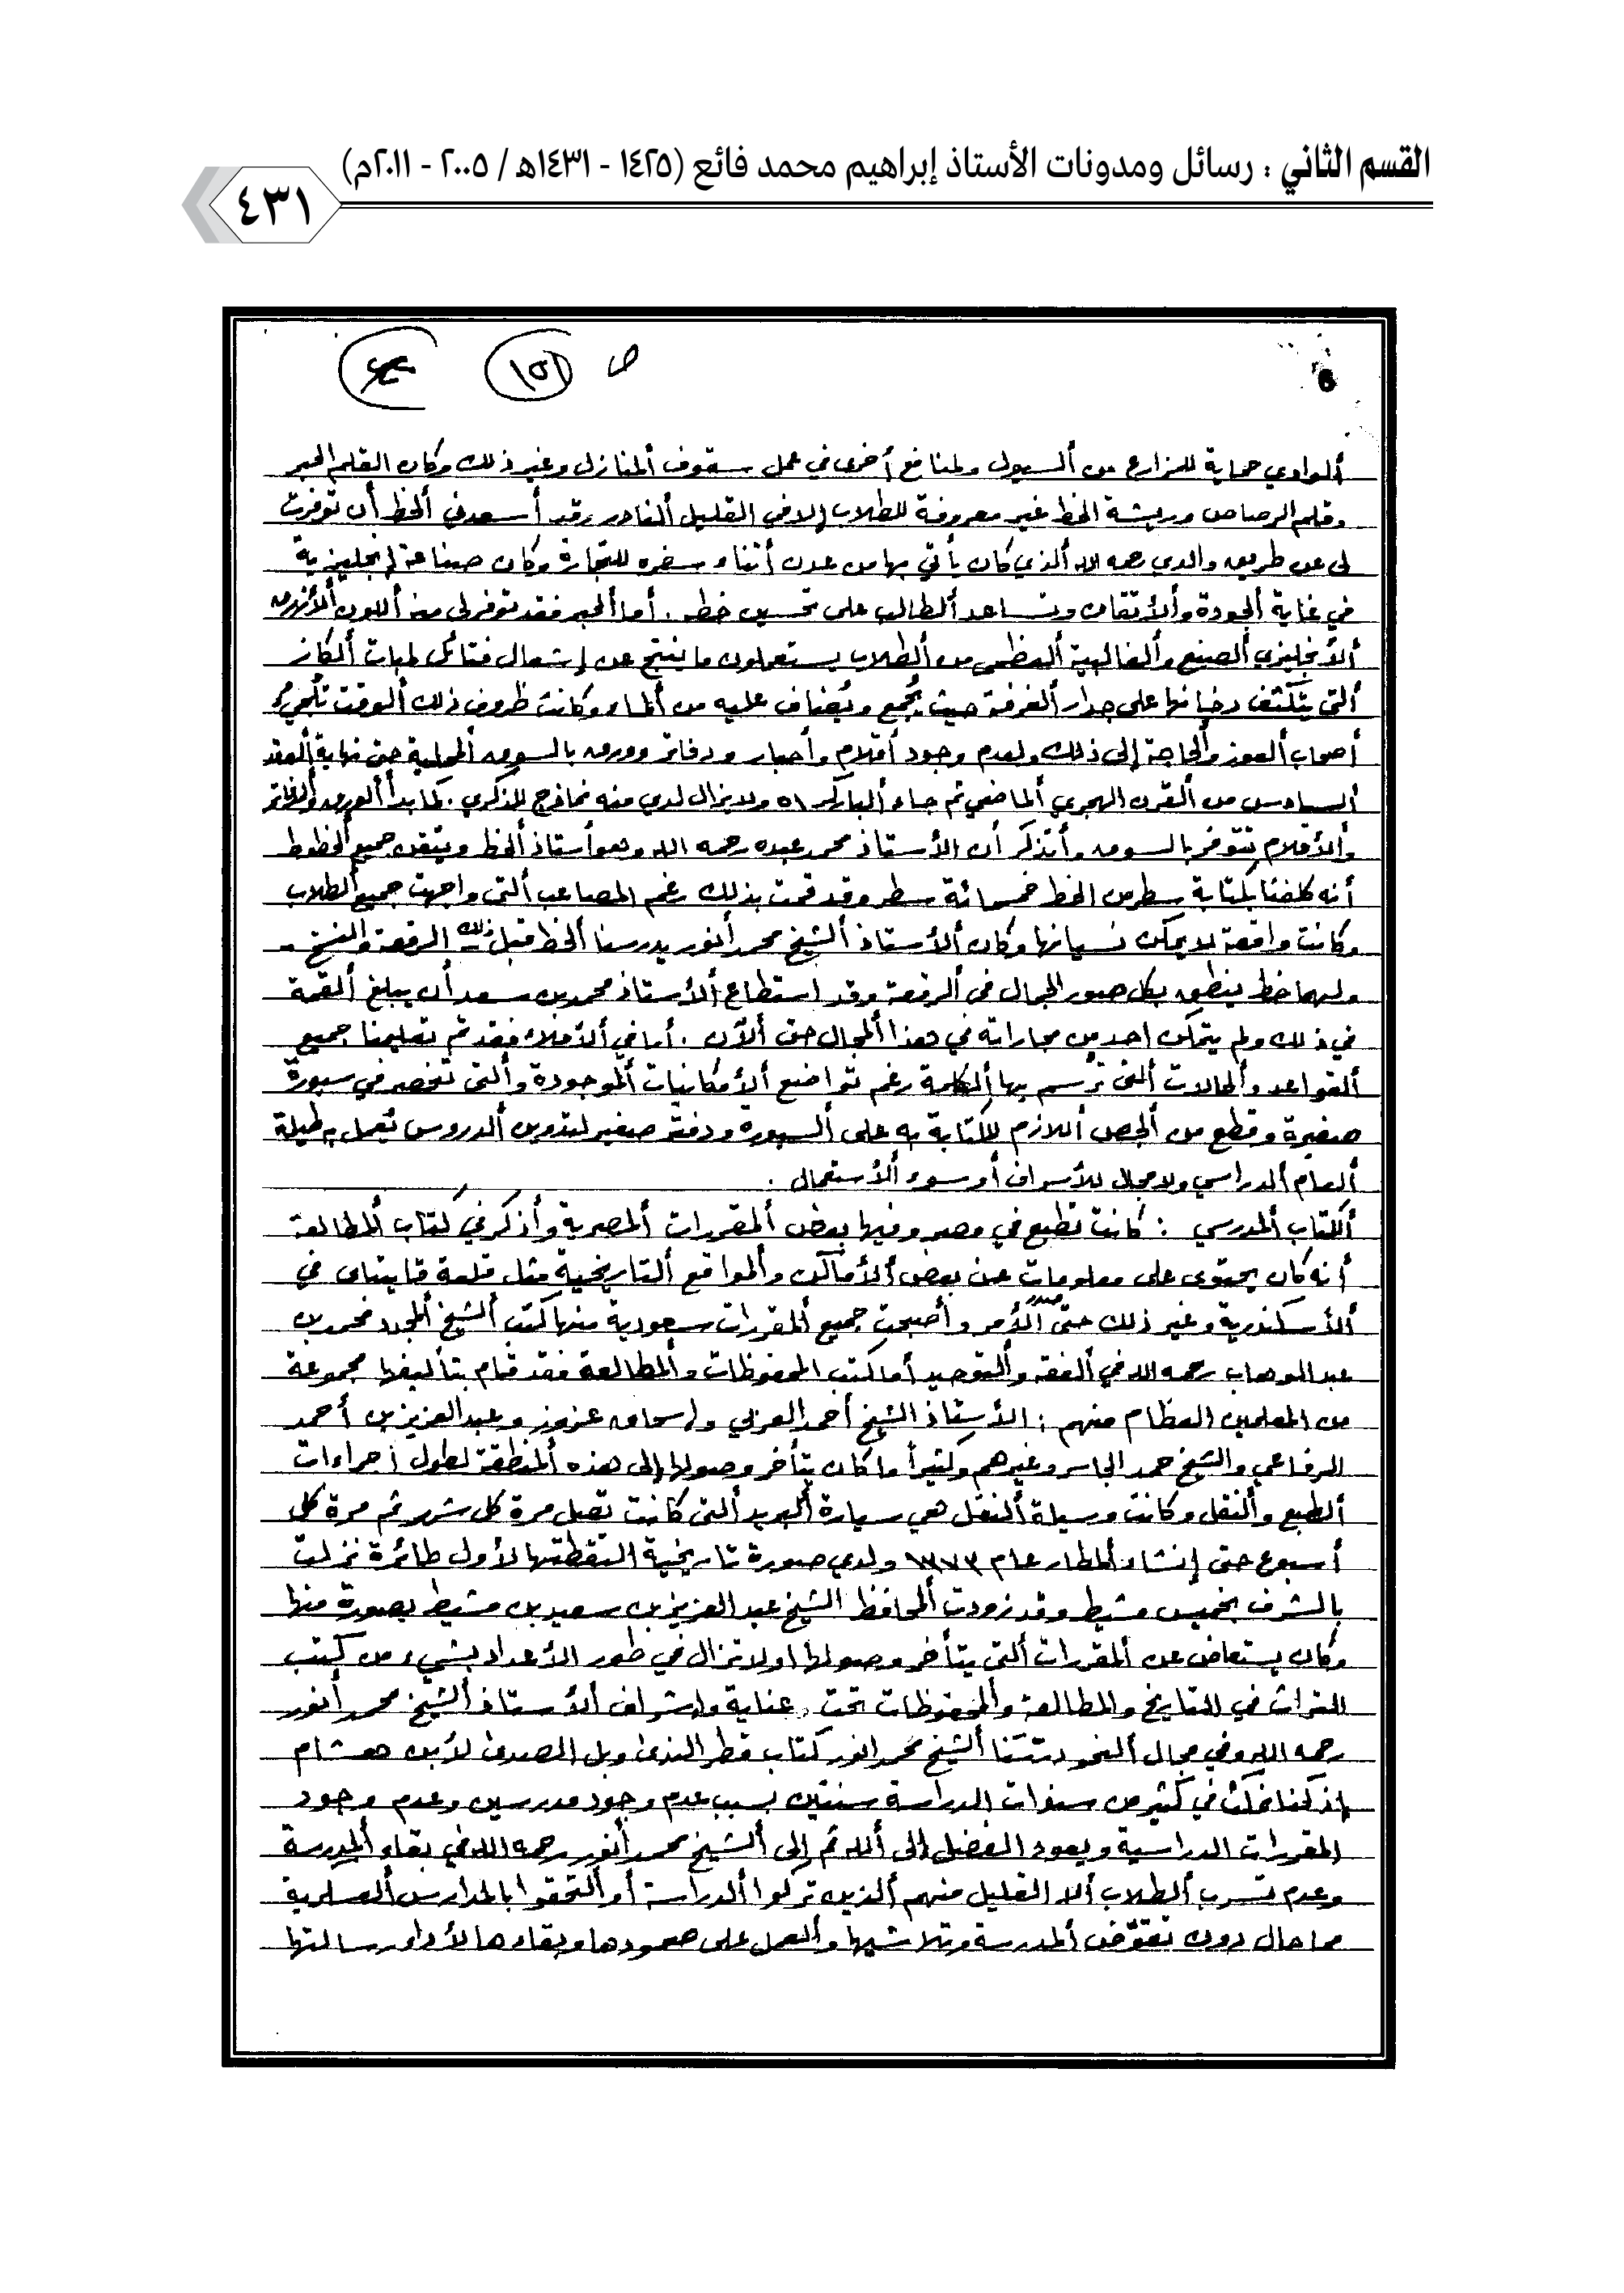 القسم الثاني : رسائل ومدونات الأستاذ إبراهيم محمد فائع (١٤٢٥ - ١٤٣١هـ / ٢٠٠٥ - ٢٠١١م)
٤٣١
ص (١٥١)
6
ألوادي حماية للمزارع من ألسيول ولمنافع أخرى في عمل سقوف ألمنازل وغير ذلك وكان القلم الحبر
وقلم الرصاص وريشة الخط غير معروفة للطلاب إلا في القليل ألنادر وقد أسعدني ألحظ أن توفرت
لي عن طريق والدي رحمه الله ألذي كان يأتي بها من عدن أثناء سفره للتجارة وكان صناعة إنجليزية
في غاية ألجودة وألأتقان وتساعد ألطالب على تحسين خطه . أما ألحبر فقد توفر لي منه أللون ألأزرق
ألأنجليزي ألصنع وألغالبية ألعظمى من ألطلاب يستعملون ما ينتج عن إشعال فتائل لمبات ألكاز
ألتي يتكثف دخانها على جدار ألغرفة حيث يُجمع ويُضاف عليه من ألماء وكانت ظروف ذلك ألوقت تُلجيء
أصحاب ألعوز وألحاجة إلى ذلك ولعدم وجود أقلام وأحبار ودفاتر وورق بالسوق ألمحلية حتى نهاية ألعقد
ألسادس من ألقرن الهجري ألماضي ثم جاء ألباركر ٥١ ولا يزال لدي منه نماذج للذكري . كما بدأ ألورق وألدفاتر
وألأقلام تتوفر بالسوق وأتذكر أن الأستاذ محمد عبده رحمه الله وهو أستاذ ألخط ويتقن جميع ألخطوط
أنه كلفنا بكتابة سطر من الخط خمسمائة سطر وقد قمت بذلك رغم المصاعب ألتي واجهت جميع ألطلاب
وكانت واقعة لا يمكن نسيانها وكان ألأستاذ ألشيخ محمد أنور يدرسنا ألخط قبل ذلك الرقعة والنسخ -
ولهما خط ينطق بكل صور الجمال في ألرقعة وقد استطاع ألأستاذ محمد بن سعد أن يبلغ ألقمة
في ذلك ولم يتمكن احد من مجاراته في هذا ألمجال حتى ألآن . أما في ألأملاء فقد تم تعليمنا جميع
ألقواعد وألحالات ألتي تُرسم بها ألكلمة رغم تواضع ألأمكانيات ألموجودة وألتي تنحصر في سبورة
صغيرة وقطع من ألجص أللازم للكتابة به على ألسبورة ودفتر صغير لتدوين ألدروس يُعمل به طيلة
ألعام ألدراسي ولا مجال للأسراف أو سوء ألأستعمال .
ألكتاب ألمدرسي : كانت تطبع في مصر وفيها بعض ألمقررات ألمصرية وأذكر في كتاب ألمطالعة
أنه كان يحتوى على معلومات عن بعض ألأماكن وألمواقع ألتاريخية مثل قلعة قايتباى في
ألأسكندرية وغير ذلك حتى صدر الأمر وأصبحت جميع ألمقررات سعودية منها كتب ألشيخ ألمجدد محمد بن
عبد الوهاب رحمه الله في ألفقه وألتوحيد أما كتب المحفوظات وألمطالعة فقد قام بتأليفها مجموعة
من المعلمين العظام منهم : الأستاذ الشيخ أحمد العربي وإسحاق عزوز وعبد العزيز بن أحمد
الرفاعي والشيخ حمد الجاسر وغيرهم وكثيراً ما كان يتأخر وصولها إلى هذه ألمنطقة لطول اجراءات
ألطبع وألنقل وكانت وسيلة ألنقل هي سيارة ألبريد ألتي كانت تصل مرة كل شهر ثم مرة كل
أسبوع حتى إنشاء ألمطار عام ١٣٧٣ ولدي صورة تاريخية التقطتها لأول طائرة نزلت
بالشرف بخميس مشيط وقد زودت ألمحافظ الشيخ عبد العزيز بن سعيد بن مشيط بصورة منها
وكان يستعاض عن ألمقررات ألتي يتأخر وصولها او لا تزال في طور الأعداد بشيء من كتب
التراث في التاريخ والمطالعة وألمحفوظات تحت عناية وإشراف ألأستاذ ألشيخ محمد أنور
رحمه الله وفي مجال ألنحو درّسَنا ألشيخ محمد انور كتاب قطر الندى وبل الصدى لأبن هشام
إذ كنا نمكث في كثير من سنوات ألدراسة سنتين بسبب عدم وجود مدرسين وعدم وجود
المقررات الدراسية ويعود الفضل إلى ألله ثم إلى ألشيخ محمد أنور رحمه الله في بقاء ألمدرسة
وعدم تسرب ألطلاب ألا القليل منهم ألذين تركوا ألدراسة أو ألتحقوا بالمدارس ألعسكرية
مما حال دون تقوّض ألمدرسة وتلاشيها وألعمل على صمودها وبقاءها لأداء رسالتها